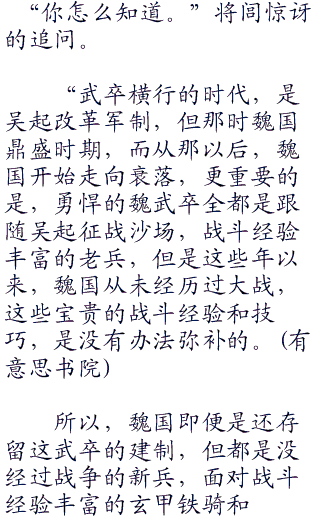 “你怎么知道。”将闾惊讶
的追问。
“武卒横行的时代，是
吴起改革军制，但那时魏国
鼎盛时期，而从那以后，魏
国开始走向衰落，更重要的
是，勇悍的魏武卒全都是跟
随吴起征战沙场，战斗经验
丰富的老兵，但是这些年以
来，魏国从未经历过大战，
这些宝贵的战斗经验和技
巧，是没有办法弥补的。(有
意思书院)
所以，魏国即便是还存
留这武卒的建制，但都是没
经过战争的新兵，面对战斗
经验丰富的玄甲铁骑和